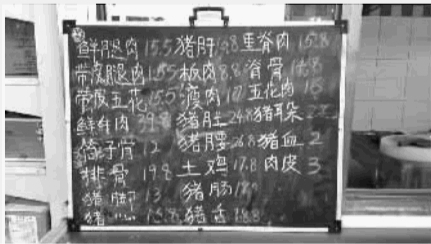 鲜腿肉 15.5 猪肝 8.8 里脊肉 15.8
带皮腿肉 15.5 板肉 8.8 脊骨
带皮五花 15.5 瘦肉 17 五花肉 16
鲜牛肉 39.8 猪肚 24.8 猪耳朵
筒子骨 12 猪腰 26.8 猪血 2
排骨 19.8 土鸡 17.8 肉皮 3
猪脚 13 猪肠 18.8
猪 15.8 猪舌 18.8